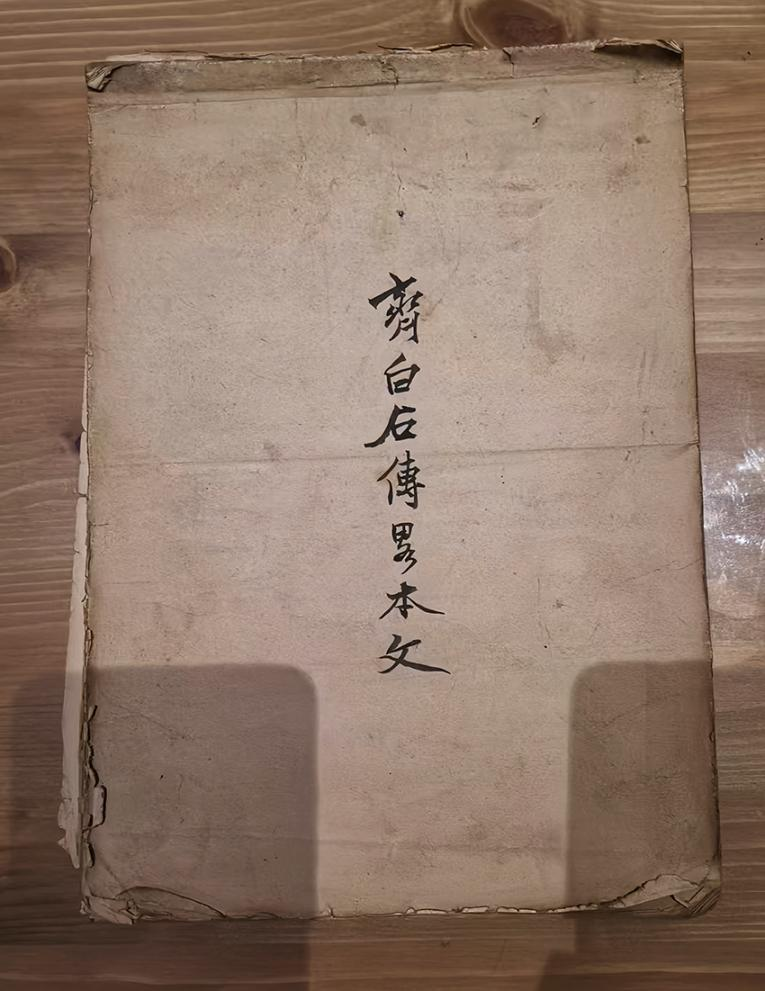 齊白石傳畧本文